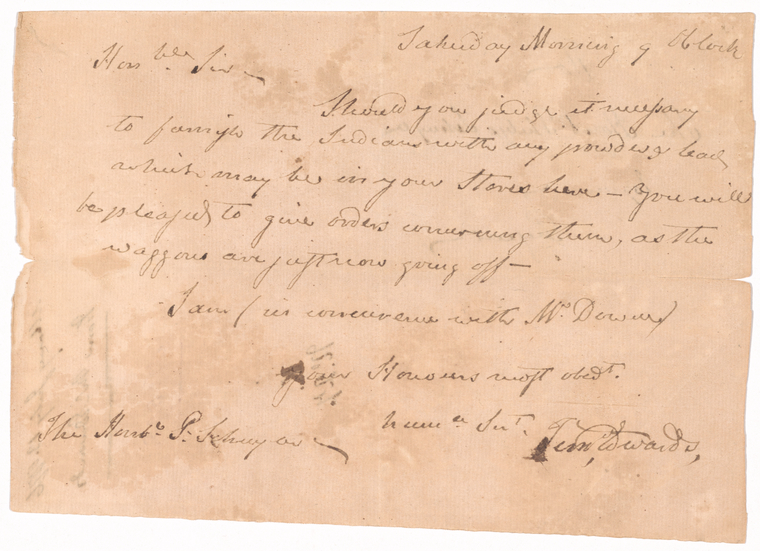 Saturday Morning 9 oClock
Honble Sir
Should you judge it necessary
to furnish the Indians with any powder & lead
which may be in your Stores here — You will
be pleased to give orders concerning them, as the
waggons are just now going off —
I am (in concurrence with Mr.
Your Honours most obedt.
hume Sert.
The Honbe. P. Schuyler
Tim Edwards,